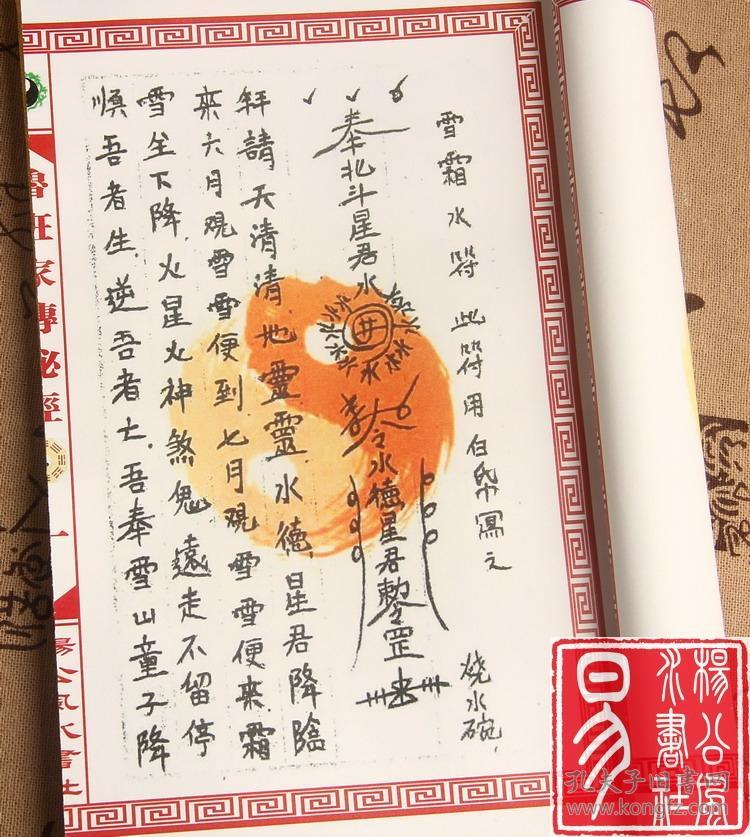 雪霜水符此符用白帋寫之
燒水碗
奉北斗星君水
井
水
令水德星君
罡
拜請天清清地靈靈水德星君降臨
來六月观雪雪便到七月观雪雪便來霜
雪全下降火星火神煞鬼遠走不留停
順吾者生逆吾者亡吾奉雪山童子降
魯班家傳秘經
一
楊公風水書社
易
楊公風水書社
孔夫子旧书网
www.kongfz.com